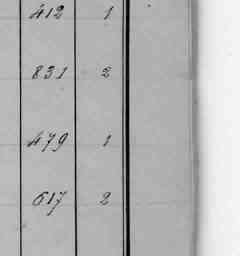 412 1
831 2
479 1
617 2